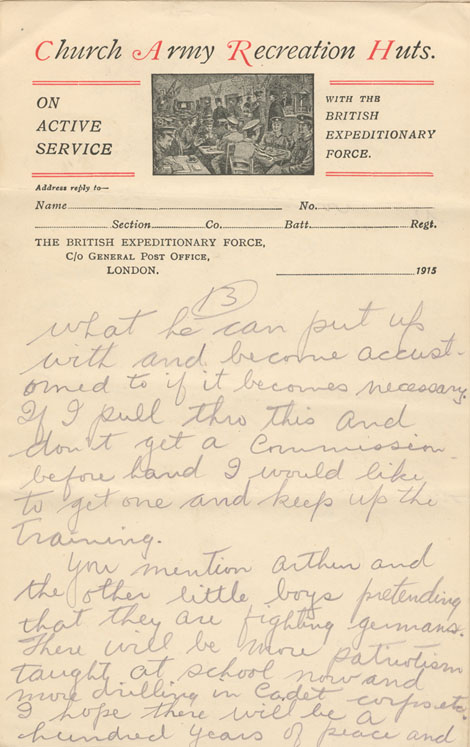 Church Army Recreation Huts.
ON
ACTIVE
SERVICE
WITH THE
BRITISH
EXPEDITIONARY
FORCE.
Address reply to—
Name No.
Section Co. Batt. Regt.
THE BRITISH EXPEDITIONARY FORCE,
C/o GENERAL POST OFFICE,
LONDON.
1915
13
what he can put up
with and become accust-
omed to if it becomes necessary.
If I pull thro this and
don't get a Commission
before hand I would like
to get one and keep up the
training.
You mention Arthur and
the other little boys pretending
that they are fighting germans.
There will be more patriotism
taught at school now and
more drilling in Cadet corps etc.
I hope there will be a
hundred years of peace and